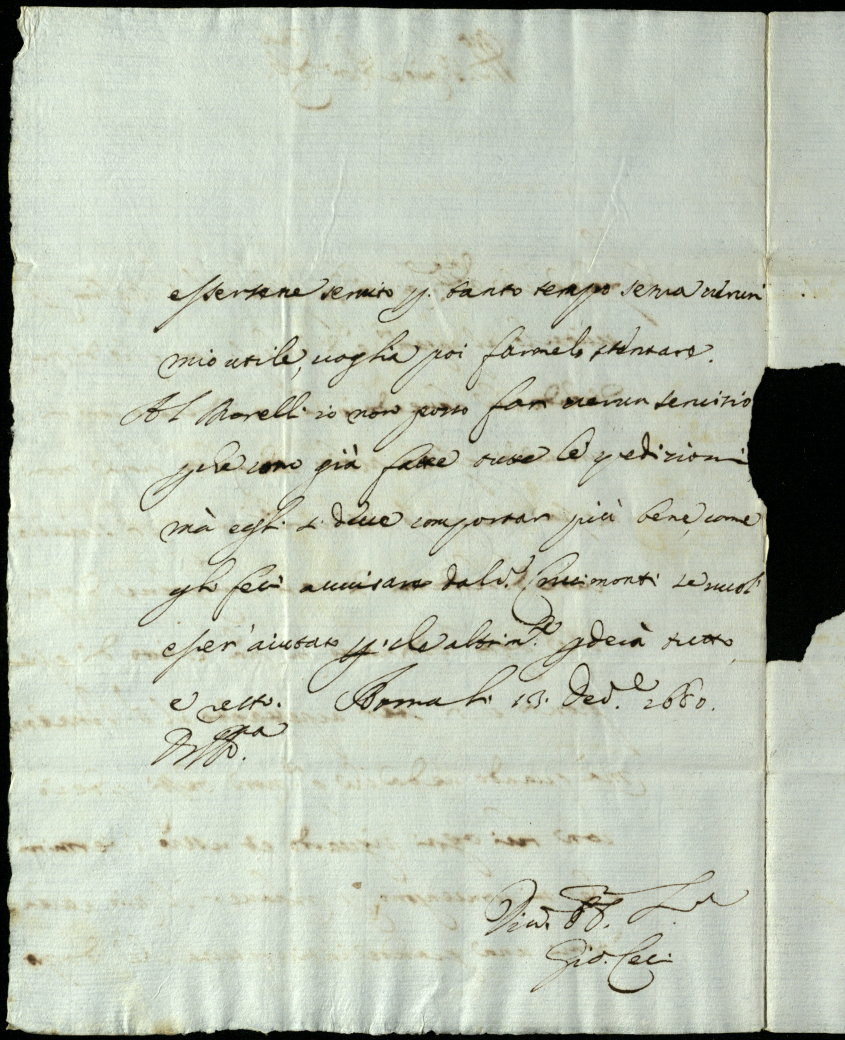 essersene seruito p. tanto tempo senza uerun
mio utile, uoglia poi farmelo stentare.
Al Morelli io non posso far uerun seruizio
già fatte tutte le spedizioni
mà egli si deue comportar più bene, come
gli feci auuisare dal S.r Cruimonti se uuol
esser' aiutato p. che altrim.te p derà tutto,
e resto. Roma li 13. Dec.e 1680.
Gio. Ceci